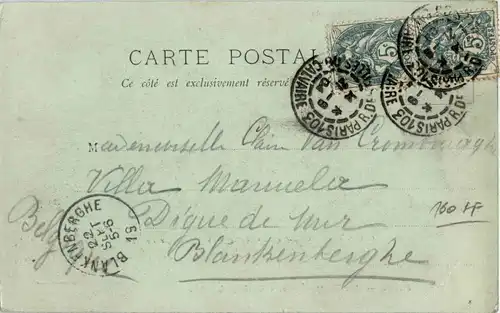 CARTE POSTALE
Ce côté est exclusivement réservé
5
5
PARIS 103
R. DES FILLES DU CALVAIRE
PARIS 103
CALVAIRE
Mademoiselle Claire Van Crombrugghe
Villa Manuela
Digue de Mer
Blankenberghe
Belg
BLANKENBERGHE
160 FF